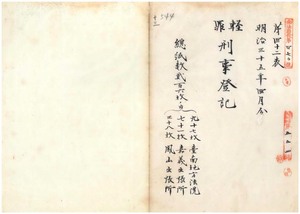 544
第四十二表
明治三十五年四月分
輕罪刑事登記
總紙數貳百六枚
九十七枚 臺南地方法院
七十一枚 嘉義出張所
三十八枚 鳳山出張所